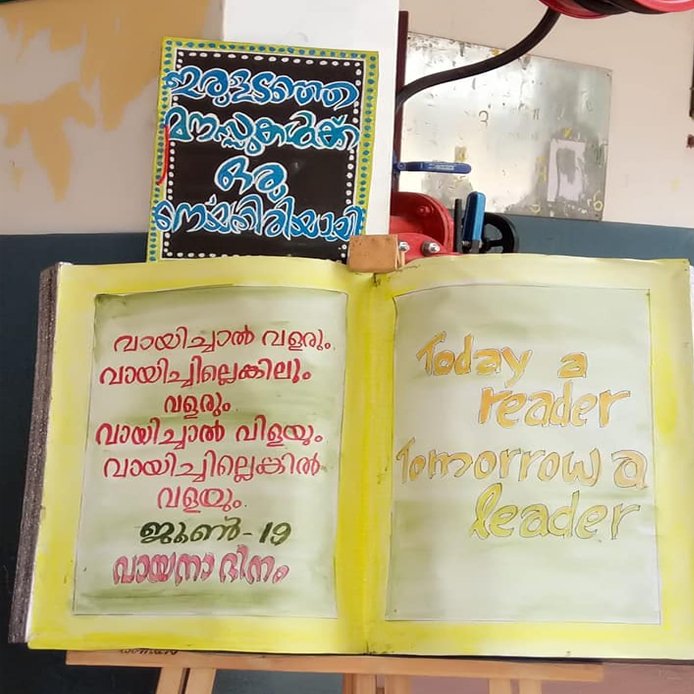 ഇരുളടഞ്ഞ
മനസ്സുകൾക്ക്
ഒരു
നെയ്ത്തിരിയായി
വായിച്ചാൽ വളരും.
വായിച്ചില്ലെങ്കിലും
വളരും.
വായിച്ചാൽ വിളയും.
വായിച്ചില്ലെങ്കിൽ
വളയും.
ജൂൺ-19
വായനാ ദിനം
Today a
reader
Tomorrow a
leader